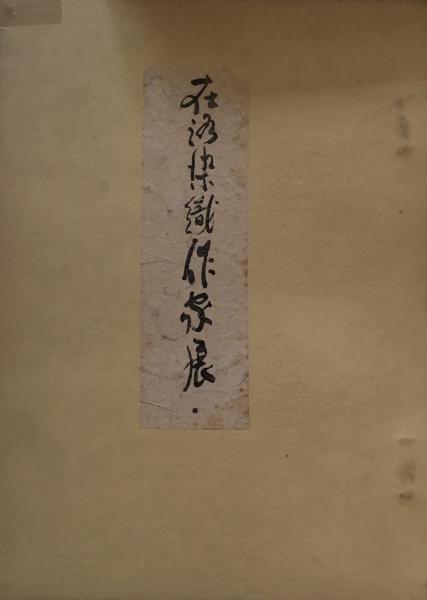 在洛染織作家展